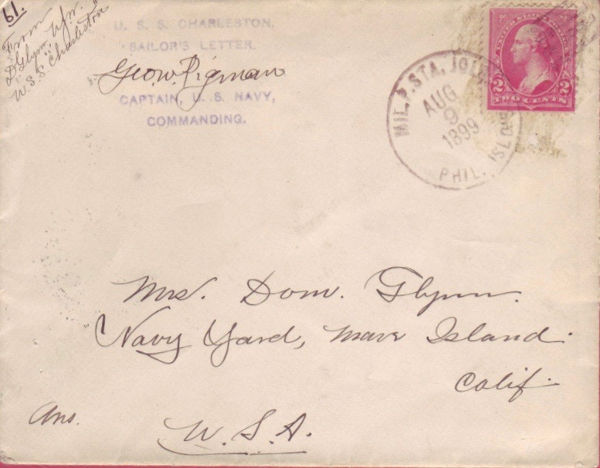 61.
From
D. Glynn
U.S.S. Charleston
U. S. S. CHARLESTON,
SAILOR'S LETTER.
Geo. W. Pigman
CAPTAIN, U. S. NAVY,
COMMANDING.
MIL. P. STA.
AUG
9
1899
PHIL. ISLDS
2 2
TWO CENTS
Mrs. Dom. Glynn.
Navy Yard, Mare Island.
Calif.
Ans.
U. S. A.